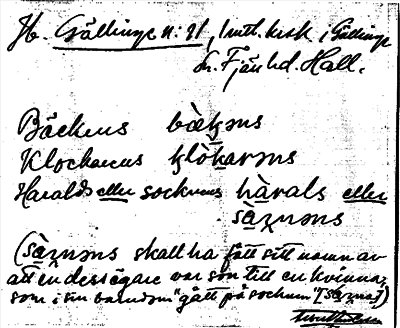 Hb. Gällinge n: 21, 1 mtl. kisk. i Gällinge
sn. Fjäre hd. Hall.
Bäckens bὰꞣəns
Klockarens ꞣlòꞣarəns
Haralds eller socknens hὰrals eller
sὰꞣnəns
(sὰꞣnəns skall ha fått sitt namn av
att en dess ägare var son till en kvinna,
som i sin barndom "gått på socknen" [sὰꞣnən])